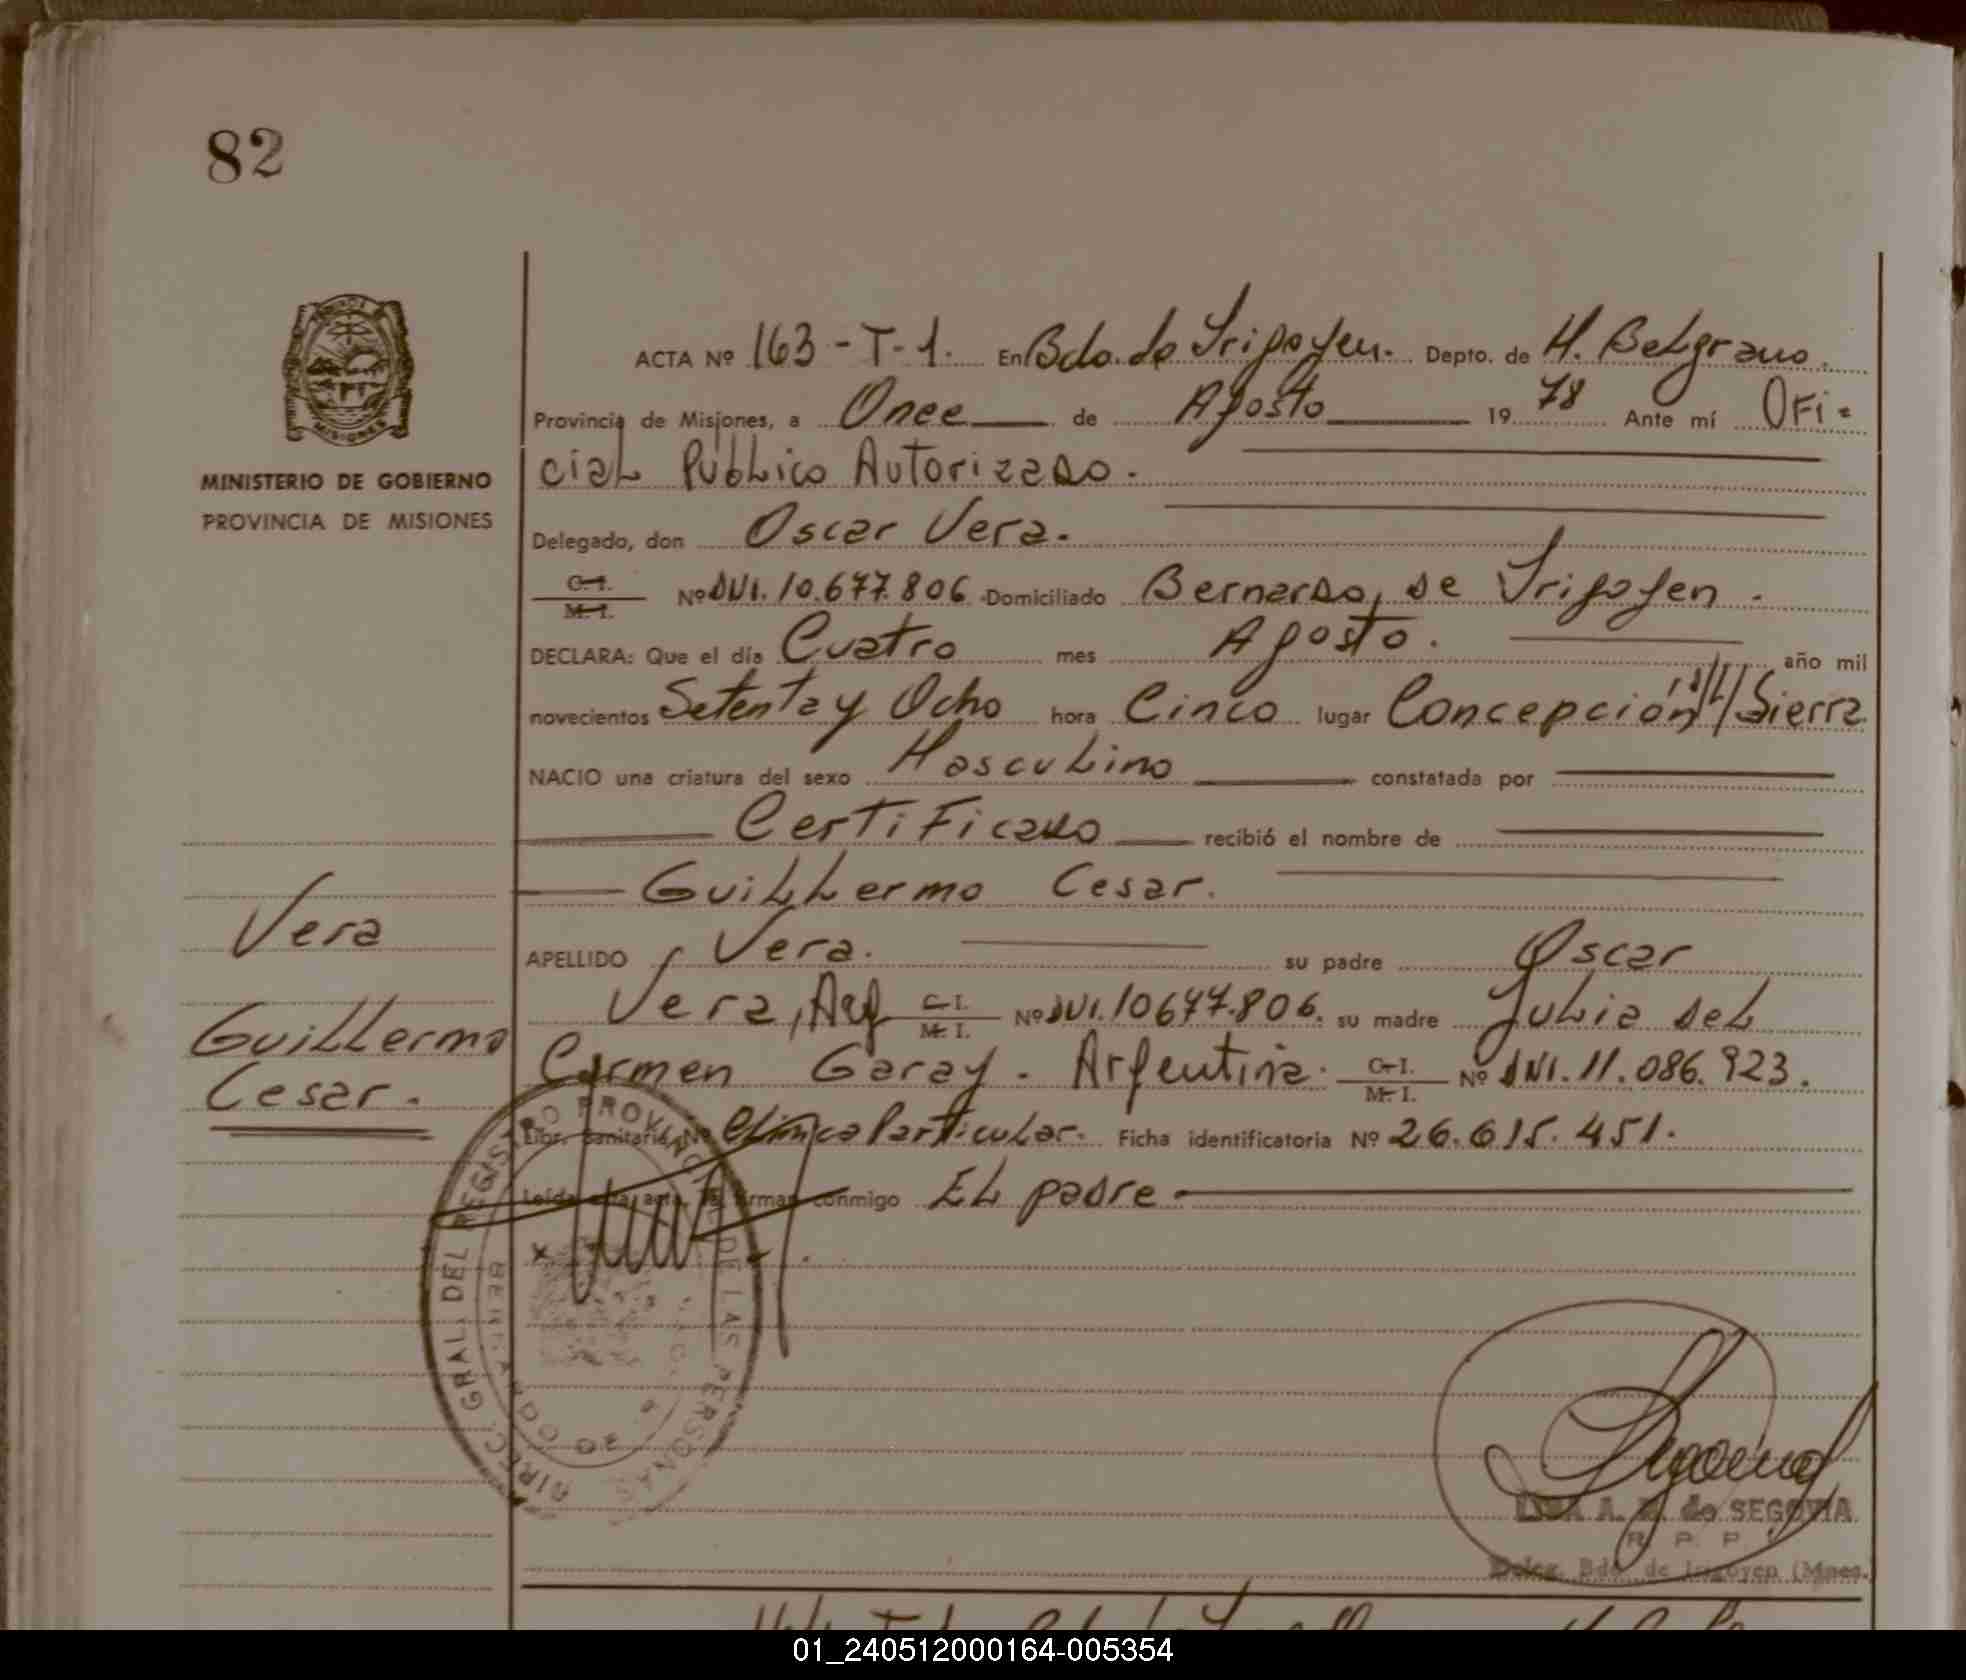 82
MISIONES
MINISTERIO DE GOBIERNO
PROVINCIA DE MISIONES
ACTA Nº 163-T-1. En Bdo. de Irigoyen. Depto. de H. Belgrano.
Provincia de Misiones, a Once de Agosto 19 78 Ante mí Ofi-
cial Público Autorizado.
Delegado, don Oscar Vera.
C. I. M. I. Nº DNI. 10.677.806 Domiciliado Bernardo de Irigoyen.
DECLARA: Que el día Cuatro mes Agosto. año mil
novecientos Setenta y Ocho hora Cinco lugar Concepción Sierra
NACIO una criatura del sexo Masculino constatada por
Certificado recibió el nombre de
Guillermo Cesar.
APELLIDO Vera. su padre Oscar
Vera, Arg C. I. M. I. Nº DNI. 10677.806. su madre Julia del
Carmen Garay. Argentina. C. I. M. I. Nº DNI. 11.086.923.
Libr. Sanitaria Nº Clínica Particular. Ficha identificatoria Nº 26.615.451.
Leída esta acta, la firman conmigo El padre.
Vera
Guillermo
Cesar.
DIREC. GRAL. DEL REGISTRO PROVINCIAL DE LAS PERSONAS
A. de SEGOVIA
R. P. P.
Deleg. Bdo. de Irigoyen (Mnes.)
01_240512000164-005354